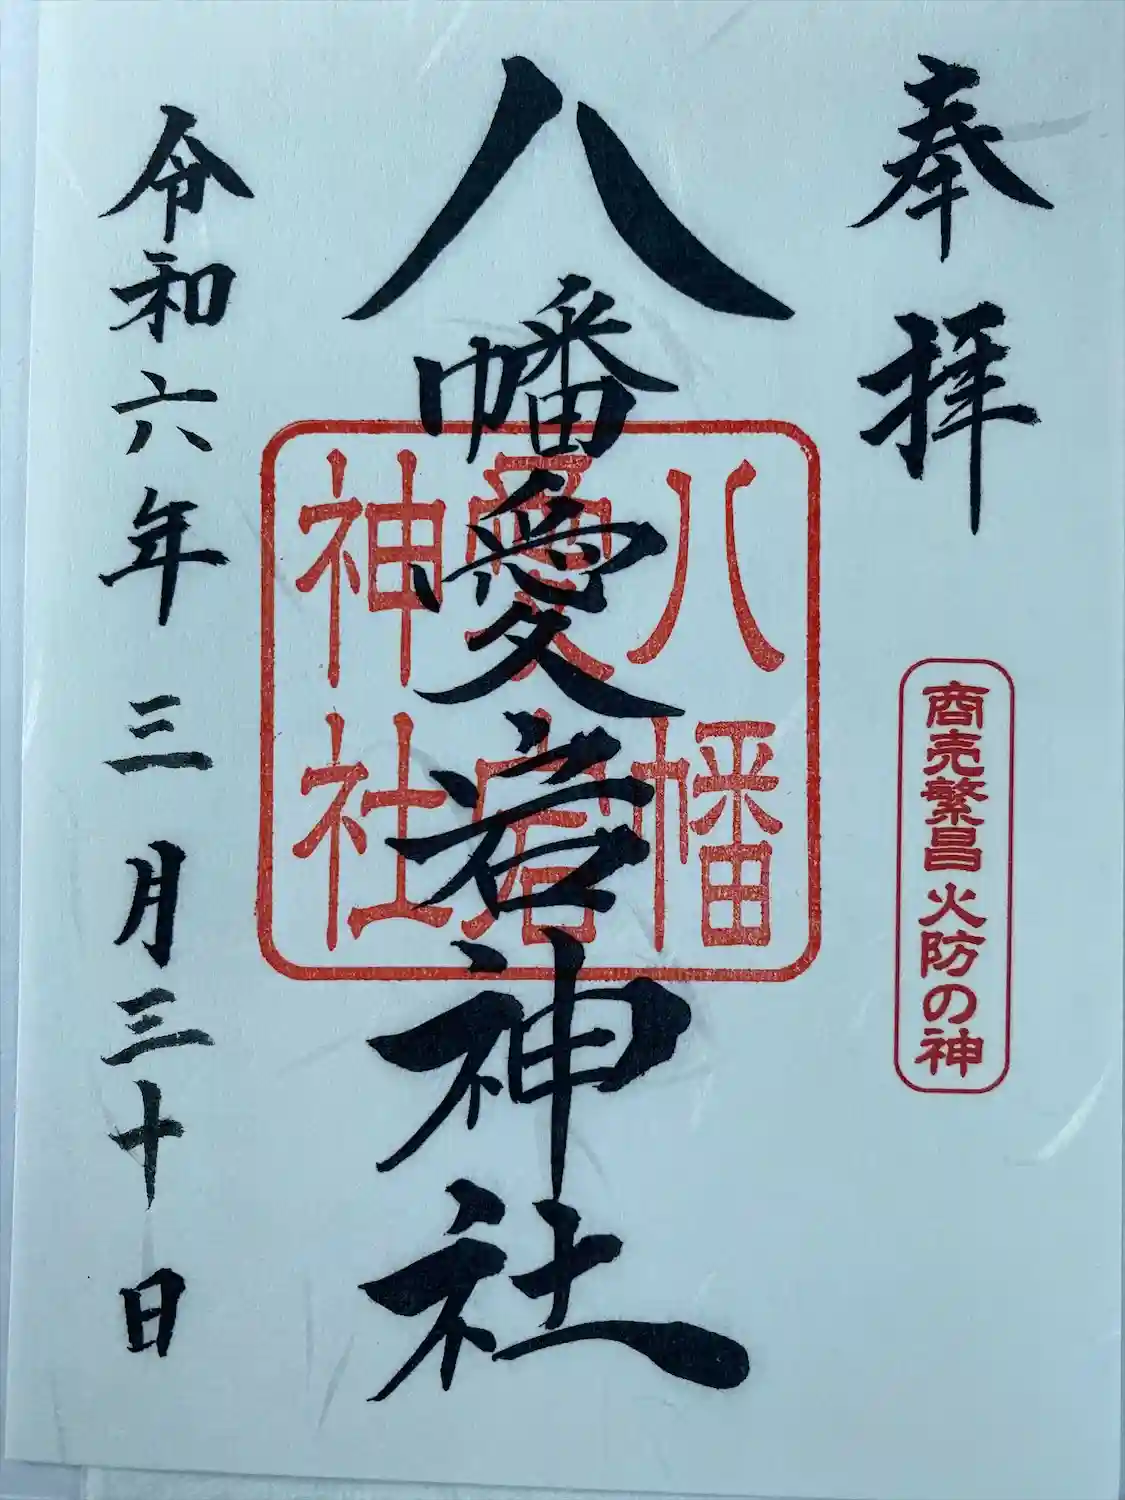 奉拝
商売繁昌火防の神
八幡愛宕神社
八幡
愛宕
神社
令和六年三月三十日